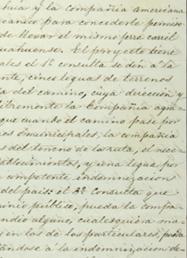 hua y la compañia americana
para concederle permiso
de llevar el mismo ferro carril
huahuense. El proyecto tiene
ales el 1º consulta se dén a la
nte, cinco leguas de terrenos
a del camino, cuya direccion y
libremente la Compañia
que cuando el camino pase por
os municipales, la compañia
del terreno de la ruta, el nece
blecimientos, y una legua por
competente indemnizacion
del pais: el 2º Consulta que
inio público, pueda la compa
ndio alguno, cualesquiera ma
en los de los particulares, 
tándose a la indemnizacion de